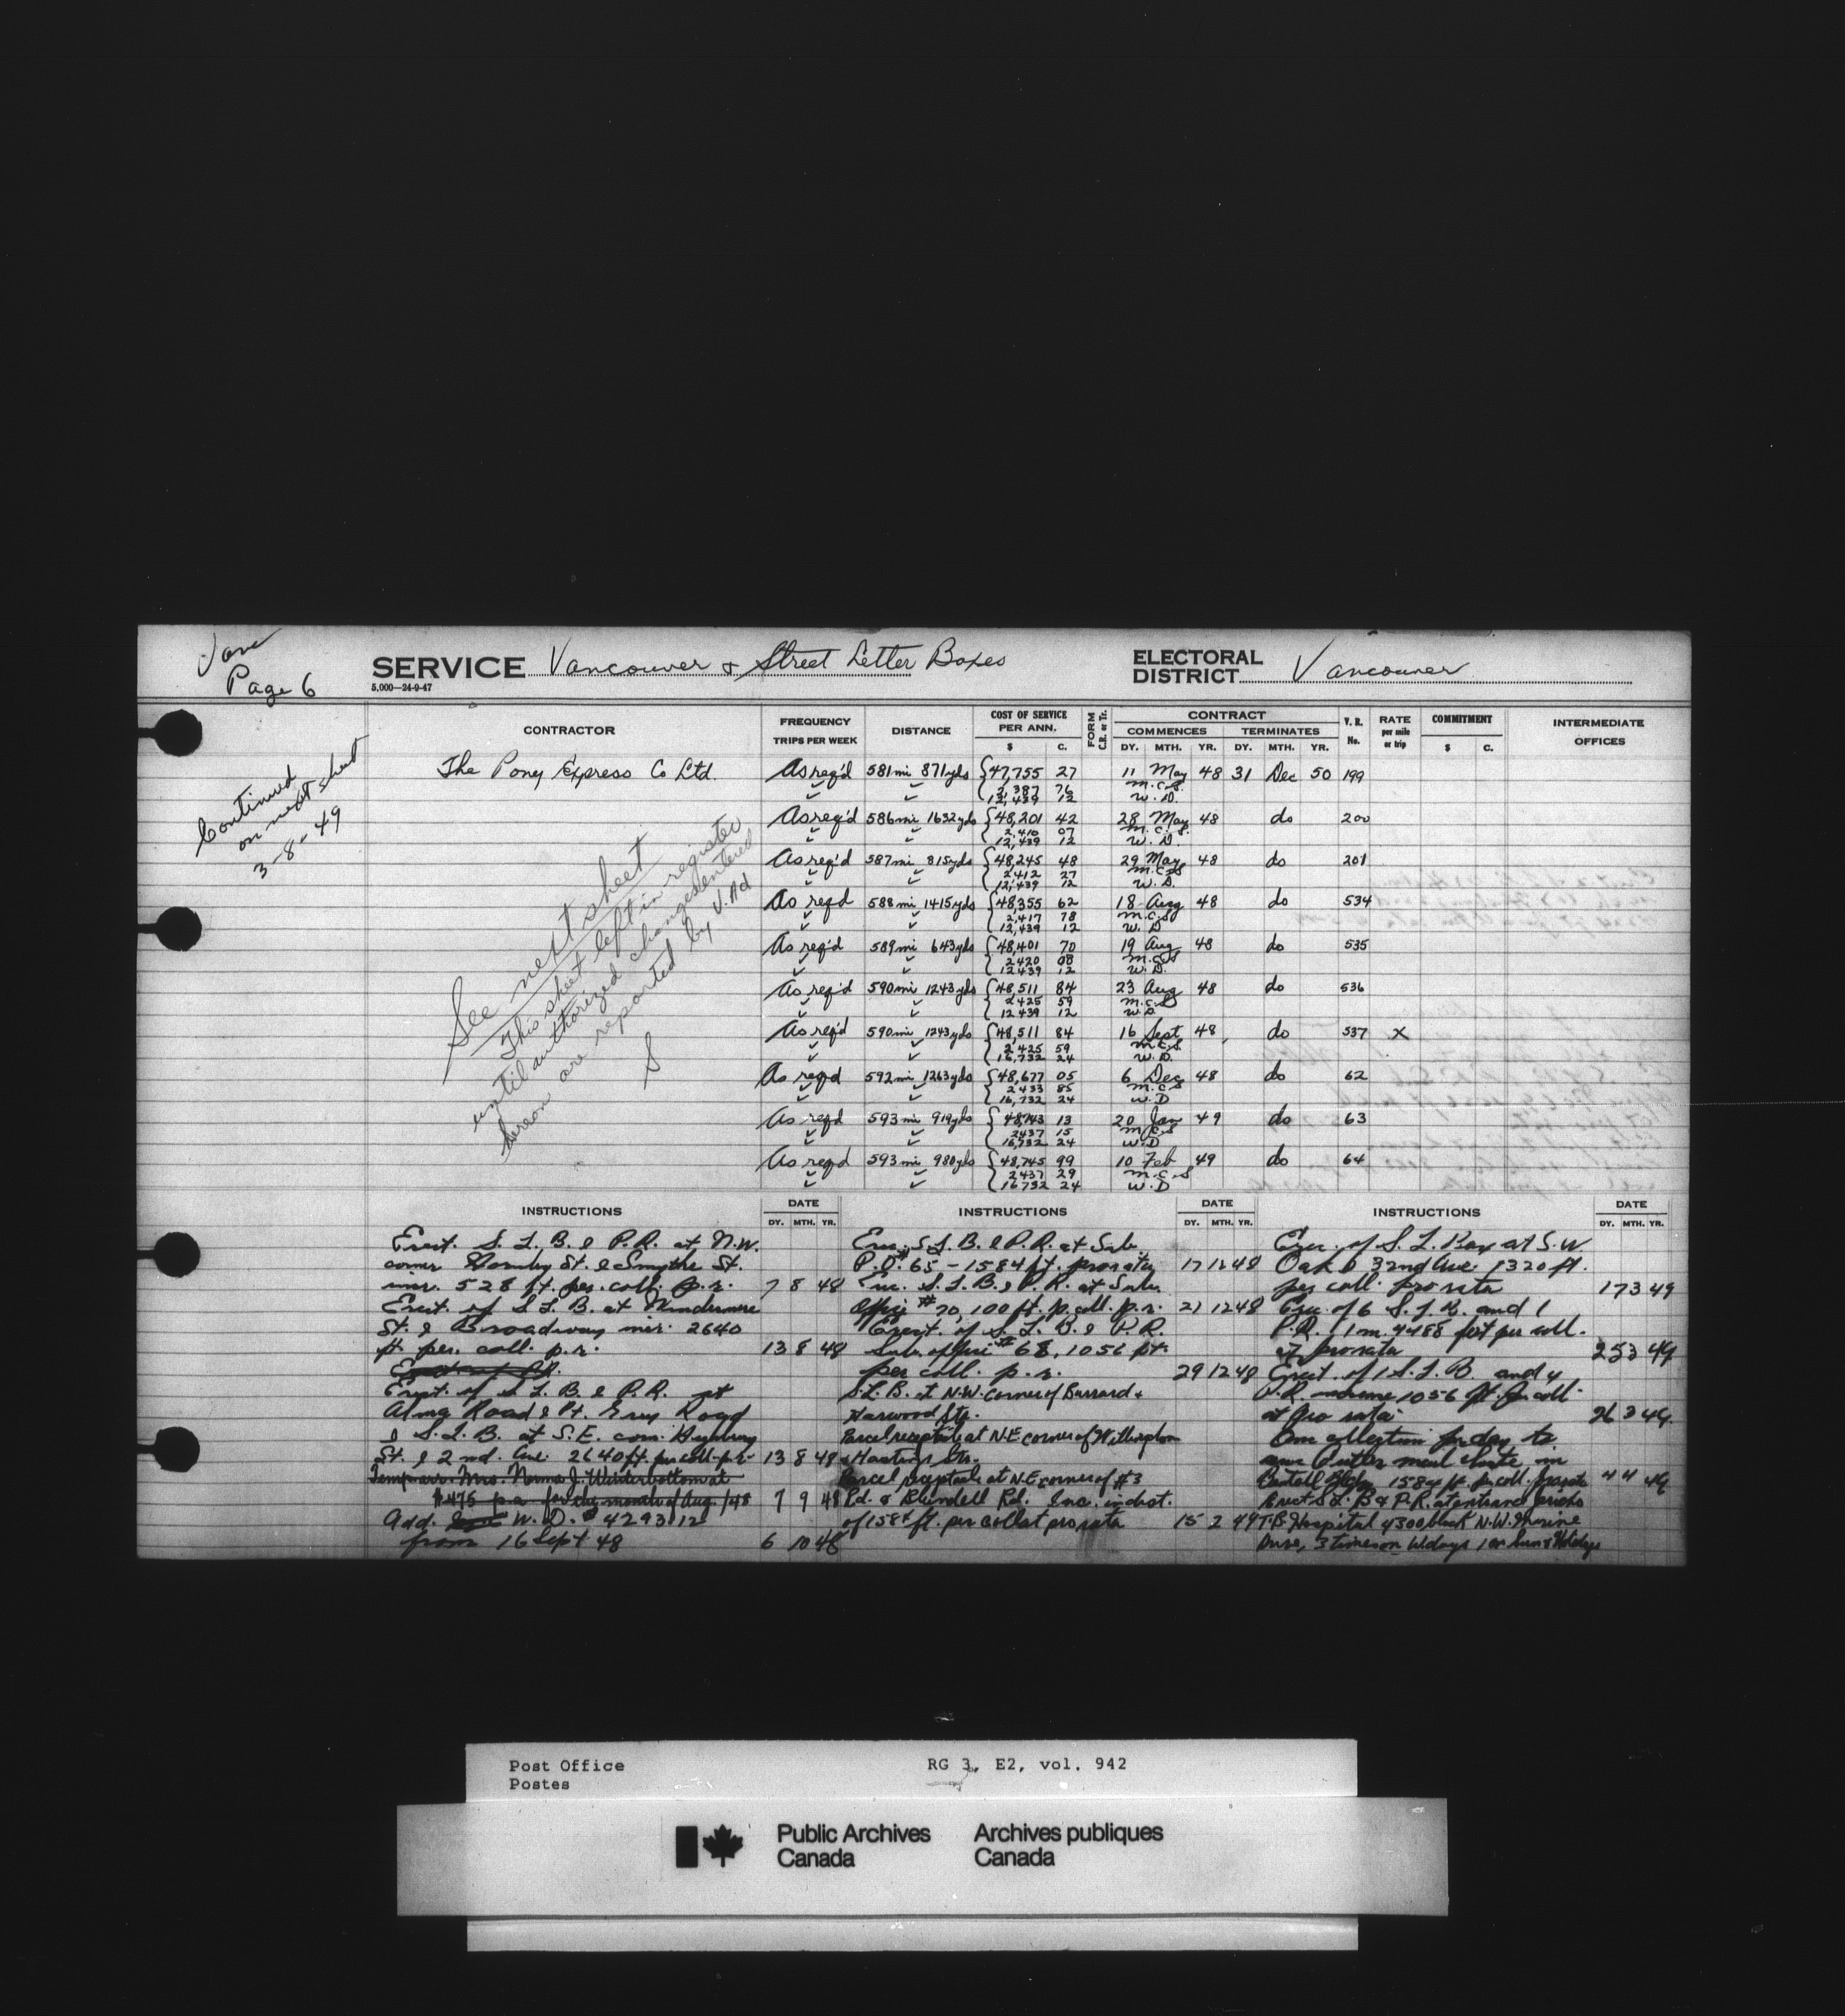 Vanc
Page 6
SERVICE Vancouver & Street Letter Boxes
5,000—24-9-47
ELECTORAL DISTRICT Vancouver
Continued
on next sheet
3-8-49
CONTRACTOR
FREQUENCY TRIPS PER WEEK
DISTANCE
COST OF SERVICE PER ANN. $ C.
FORM C.R. or Tr.
CONTRACT
COMMENCES DY. MTH. YR.
TERMINATES DY. MTH. YR.
V. R. No.
RATE per mile or trip
COMMITMENT $ C.
INTERMEDIATE OFFICES
The Pony Express Co Ltd.
As req'd 581 mi 871 yds 47,755 27 11 May 48 31 Dec 50 199
2,387 76 M.C.S.
12,439 12 W.D.
As req'd 586 mi 1632 yds 48,201 42 28 May 48 do 200
2,410 07 M.C.S.
12,439 12 W.D.
As req'd 587 mi 815 yds 48,245 48 29 May 48 do 201
2412 27 M.C.S
12,439 12 W.D.
As req'd 588 mi 1415 yds 48,355 62 18 Aug 48 do 534
2,417 78 M.C.S
12,439 12 W.D
As req'd 589 mi 643 yds 48,401 70 19 Aug 48 do 535
2420 08 M.C.S
12439 12 W.D.
As req'd 590 mi 1243 yds 48,511 84 23 Aug 48 do 536
2425 59 M.C.S
12439 12 W.D.
As req'd 590 mi 1243 yds 48,511 84 16 Sept 48 do 537 x
2,425 59 M.C.S.
16,732 24 W.D.
As reqd 592 mi 1263 yds 48,677 05 6 Dec 48 do 62
2433 85 M.C.S
16,732 24 W.D
As reqd 593 mi 919 yds 48,743 13 20 Jan 49 do 63
2437 15 M.C.S
16,732 24 W.D
As reqd 593 mi 980 yds 48,745 99 10 Feb 49 do 64
2437 29 M.C.S
16732 24 W.D
See next sheet
This sheet left in register
until authorized changes entered
hereon are reported by V.Ad
S
INSTRUCTIONS
DATE DY. MTH. YR.
Erect. S. L. B. & P.R. at N.W.
corner Hornby St. & Smythe St.
incr. 528 ft. per. coll. p.r. 7 8 48
Erect. of S L B. at Windermere
St. & Broadway incr. 2640
ft. per. coll. p.r. 13 8 48
Erect. of S L. B. & P.R. at
Alma Road & Pt. Grey Road
& S.L.B. at S.E. corn.
St. & 2nd. Ave 2640 ft. per coll. p.r. 13 8 48
Temporary Mrs. Norma J. Winterbottom at
$475 p.a for the month of Aug./48 7 9 48
Add. W.D. $4293 12
from 16 Sept 48 6 10 48
INSTRUCTIONS
DATE DY. MTH. YR.
Erec. S.L.B. & P.R. at Sub.
P.O. #65 - 1584 ft. pro rata 17 12 48
S.L.B. & P.R. at Sub.
Office #70, 100 ft. p. coll. p.r. 21 12 48
Erect. of S. L. B. & P.R.
Sub. office #68, 1056 ft.
per coll. p.r. 29 12 48
S.L.B. at N.W. corner of Burrard &
Harwood Sts.
Parcel receptacle at N.E corner of Willingdon
& Hastings Sts.
Parcel receptacle at N.E corner of #3
Rd. & Blundell Rd. Inc. in dist.
of 1584 ft. per coll at pro rata 15 2 49
INSTRUCTIONS
DATE DY. MTH. YR.
Erec. of S.L. Box at S.W
Oak & 32nd Ave 1320 ft.
per coll. pro rata 17 3 49
Erec. of 6 S.L.B. and 1
P.R. 1 m. 4488 feet per coll.
at pro rata 25 3 49
Erect. of 1 S.L.B. and 4
P.R. 1056 ft. per coll.
at pro rata 26 3 49
One collection per day to
mail chute in
Bldg 1584 ft. p. coll. pro rata 4 4 49
Erect S.L.B & P.R. at entrance Jericho
T.B. Hospital 4300 block N.W. Marine
Drive, 3 times on W.days 1 on Sun & Holidays
Post Office
Postes
RG 3, E2, vol. 942
Public Archives Canada
Archives publiques Canada